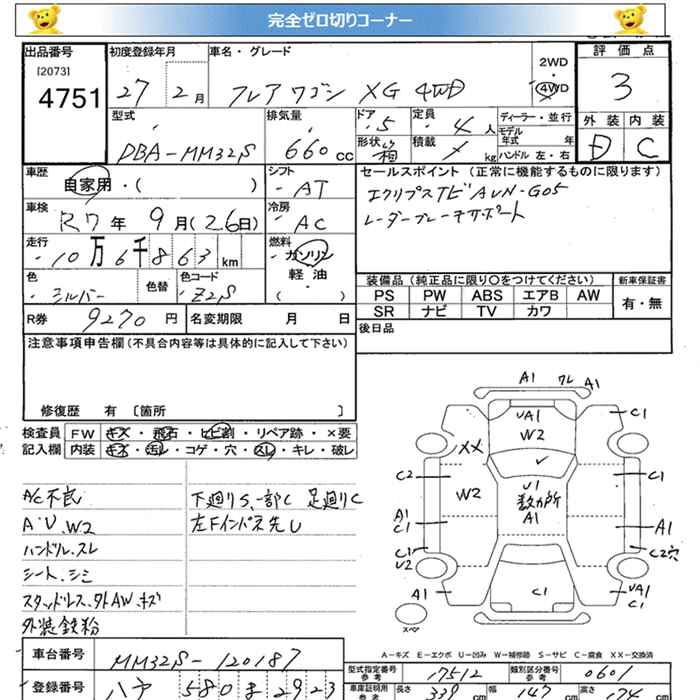 完全ゼロ切りコーナー
出品番号
[2073]
4751
初度登録年月
27 2月
車名・グレード
フレアワゴン XG 4WD
2WD
・
4WD
評価点
3
型式
DBA-MM32S
排気量
660cc
ドア
5
定員
4人
形状
箱
積載
kg
ディーラー・並行
モデル
年式 年
ハンドル 左・右
外装 内装
D C
車歴
自家用・( )
シフト
AT
セールスポイント (正常に機能するものに限ります)
エクリプスTビ AVN-G05
レーダーブレーキサポート
車検
R7年 9月(26日)
冷房
AC
走行
10万6千863km
燃料
ガソリン
軽油
( )
色
シルバー
色替
色コード
Z2S
装備品 (純正品に限り〇をつけてください)
PS PW ABS エアB AW
SR ナビ TV カワ
新車保証書
有・無
R券 9270円
名変期限 月 日
後日品
注意事項申告欄(不具合内容等は具体的に記入して下さい)
修復歴 有 〔箇所 〕
検査員
記入欄
FW キズ・飛石・ヒビ割・リペア跡・×要
内装 キズ・汚レ・コゲ・穴・スレ・キレ・破レ
AC不良
A・U、W2
ハンドル、スレ
シート、シミ
スタッドレス、外AW、キズ
外装鉄粉
下廻りS、一部C 足廻りC
左Fインパネ先U
A1 クレ A1
UA1
W2
C1
XX
C2
W2
U1
数カ所
A1
C1
A1
C1
A1
C1
U2
C2穴
A1
C1
UA1
C1
スペア
A-キズ E-エクボ U-凹み W-補修跡 S-サビ C-腐食 XX-交換済
車台番号
MM32S-120187
型式指定番号
参考
17512
類別区分番号
参考
0601
登録番号
八戸 580 ま 2923
車庫証明用
参考
長さ 339cm 幅 147cm 高さ 174cm